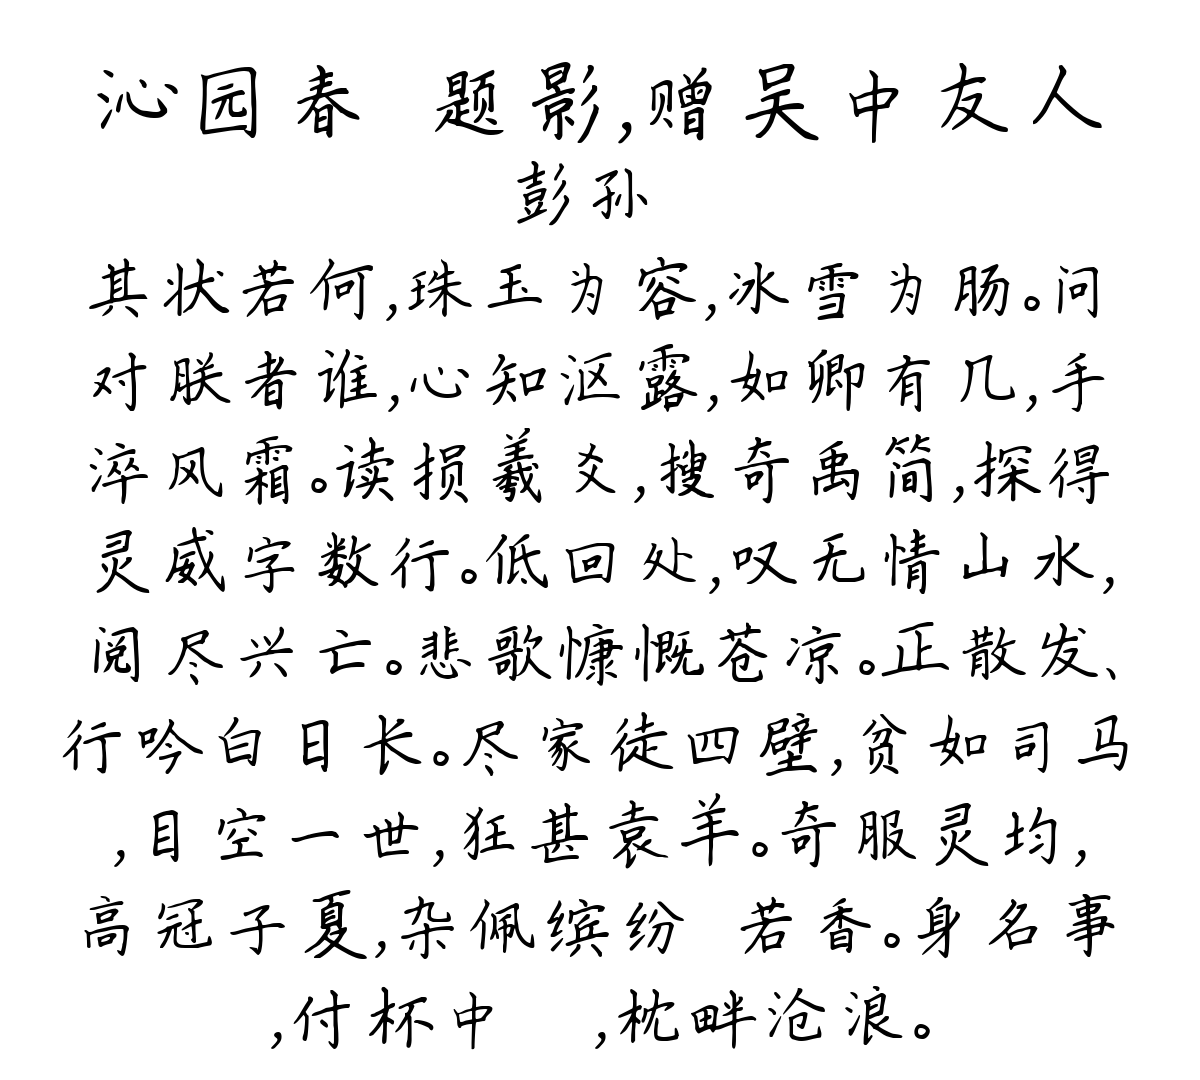 沁园春 题影,赠吴中友人
彭孙
其状若何,珠玉为容,冰雪为肠。问
对朕者谁,心知沤露,如卿有几,手
淬风霜。读损羲爻,搜奇禹简,探得
灵威字数行。低回处,叹无情山水,
阅尽兴亡。悲歌慷慨苍凉。正散发、
行吟白日长。尽家徒四壁,贫如司马
,目空一世,狂甚袁羊。奇服灵均,
高冠子夏,杂佩缤纷 若香。身名事
,付杯中 ,枕畔沧浪。